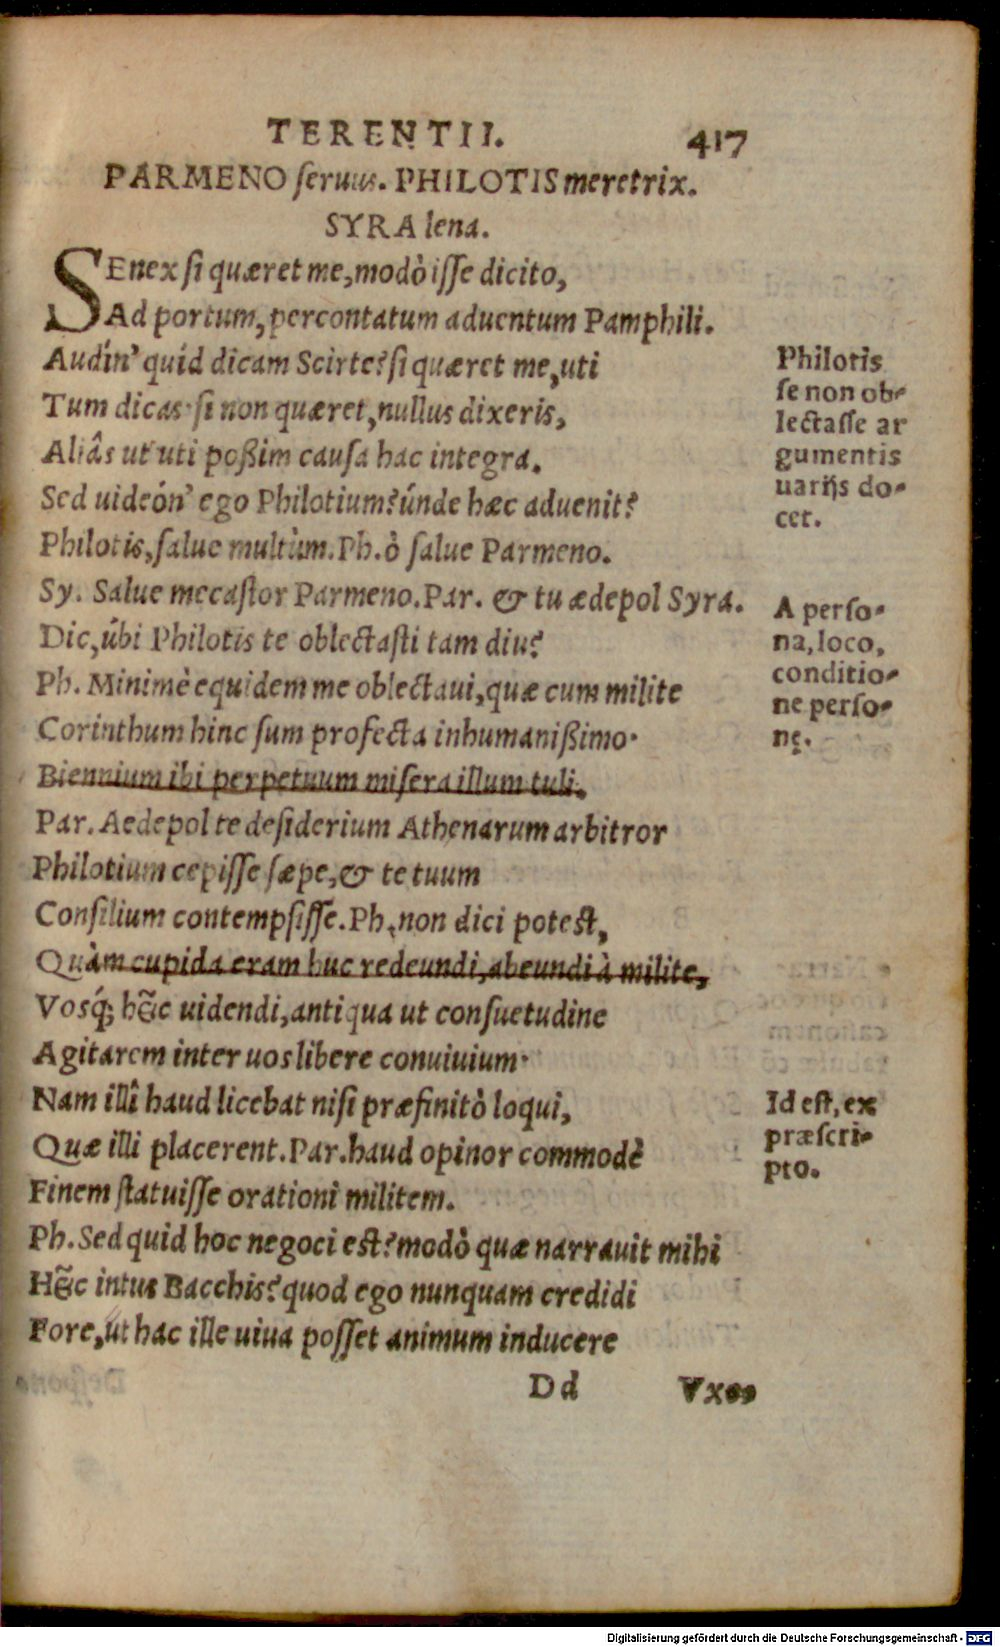 TERENTII. 417
PARMENO seruus. PHILOTIS meretrix.
SYRA lena.
SEnex si quæret me, modò isse dicito,
Ad portum, percontatum aduentum Pamphili.
Audín' quid dicam Scirte? si quæret me, uti
Tum dicas· si non quæret, nullus dixeris,
Aliâs ut uti poßim causa hac integra.
Sed uideón' ego Philotium? únde hæc aduenit?
Philotis, salue multùm. Ph. ò salue Parmeno.
Sy. Salue mecastor Parmeno. Par. & tu ædepol Syra.
Dic, úbi Philotis te oblectasti tam diu?
Ph. Minimè equidem me oblectaui, quæ cum milite
Corinthum hinc sum profecta inhumanißimo·
Biennium ibi perpetuum misera illum tuli.
Par. Aedepol te desiderium Athenarum arbitror
Philotium cepisse sæpe, & te tuum
Consilium contempsisse. Ph. non dici potest,
Quàm cupida eram huc redeundi, abeundi à milite,
Vosq́; hîc uidendi, antiqua ut consuetudine
Agitarem inter uos libere conuiuium·
Nam illî haud licebat nisi præfinitò loqui,
Quæ illi placerent. Par. haud opinor commodè
Finem statuisse orationi militem.
Ph. Sed quid hoc negoci est? modò quæ narrauit mihi
Hîc intus Bacchis? quod ego nunquam credidi
Fore, ut hac ille uiua posset animum inducere
Dd Vxo⸗
Philotis
se non ob⸗
lectasse ar
gumentis
uarijs do⸗
cet.
A perso⸗
na, loco,
conditio⸗
ne perso⸗
nę.
Id est, ex
præscri⸗
pto.
Digitalisierung gefördert durch die Deutsche Forschungsgemeinschaft - DFG